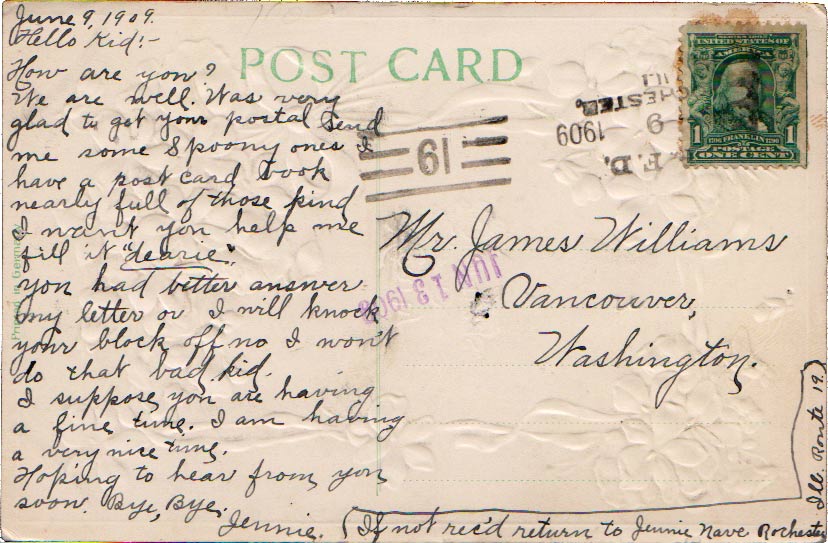 June 9, 1909.
Hello Kid:-
How are you?
We are well. Was very
glad to get your postal Send
me some Spoony ones I
have a post card book
nearly full of those kind
I want you help me
fill it "dearie".
you had better answer
my letter or I will knock
your block off no I won't
do that bad kid.
I suppose you are having
a fine time. I am having
a very nice time.
Hoping to hear from you
soon. Bye, Bye,
Jennie.
(If not rec'd return to Jennie Nave Rochester
Ill. Route 19.)
POST CARD
Printed in Germany
Mr. James Williams
Vancouver,
Washington.
19
JUN 13 1909
CHESTER,
ILL
9
1909
F.D.
SERIES 1902
UNITED STATES OF
AMERICA
1 FRANKLIN 1
POSTAGE
ONE CENT